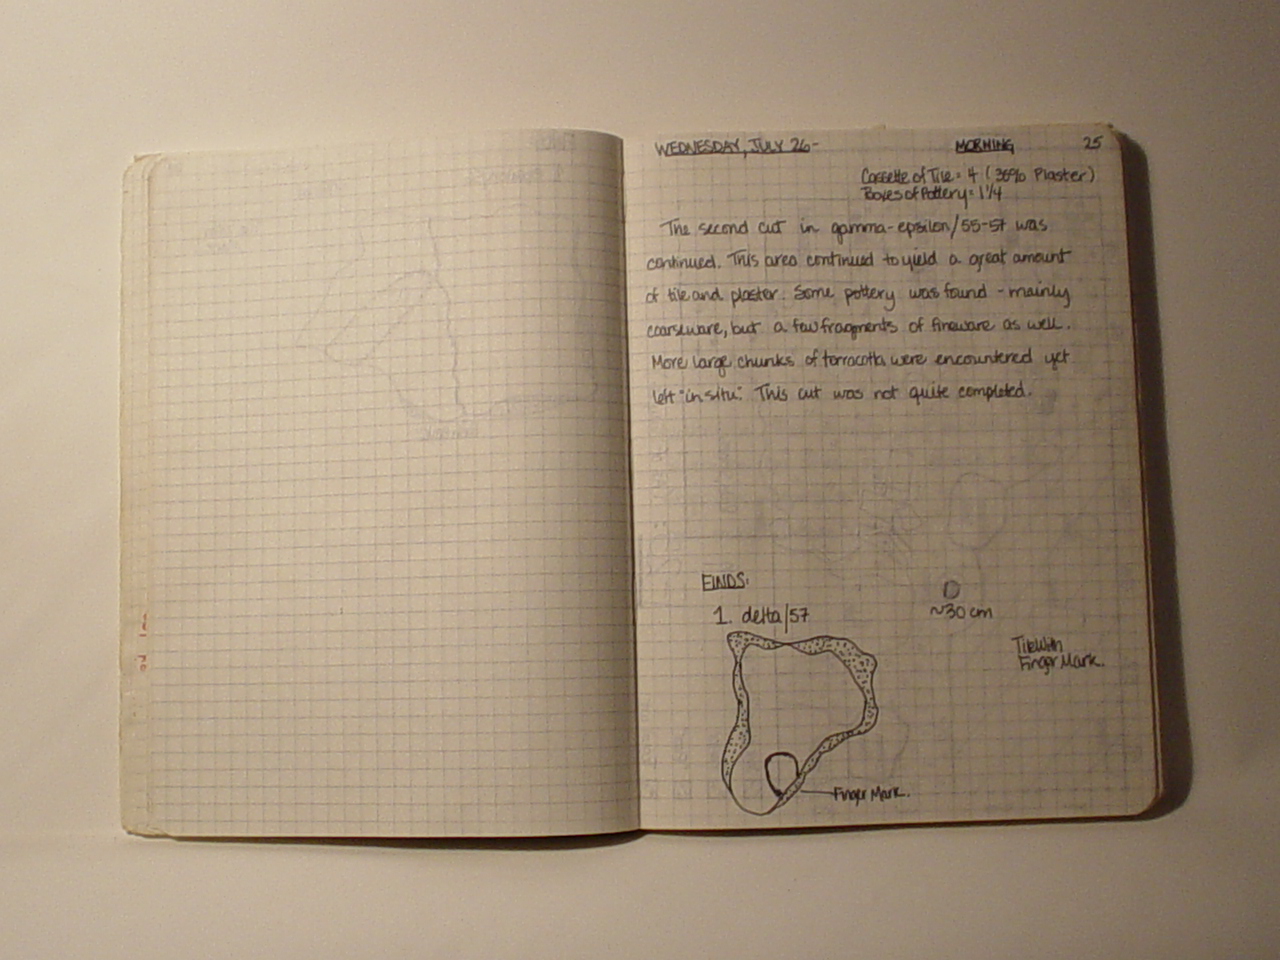 WEDNESDAY, JULY 26- MORNING 25
Cassette of Tile = 4 (30% Plaster)
Boxes of Pottery = 1 1/4
The second cut in gamma-epsilon/55-57 was
continued. This area continued to yield a great amount
of tile and plaster. Some pottery was found - mainly
coarseware, but a few fragments of fineware as well.
More large chunks of terracotta were encountered yet
left "in situ". This cut was not quite completed.
FINDS:
1. delta/57
~30 cm
Tile With
Finger Mark.
Finger Mark.